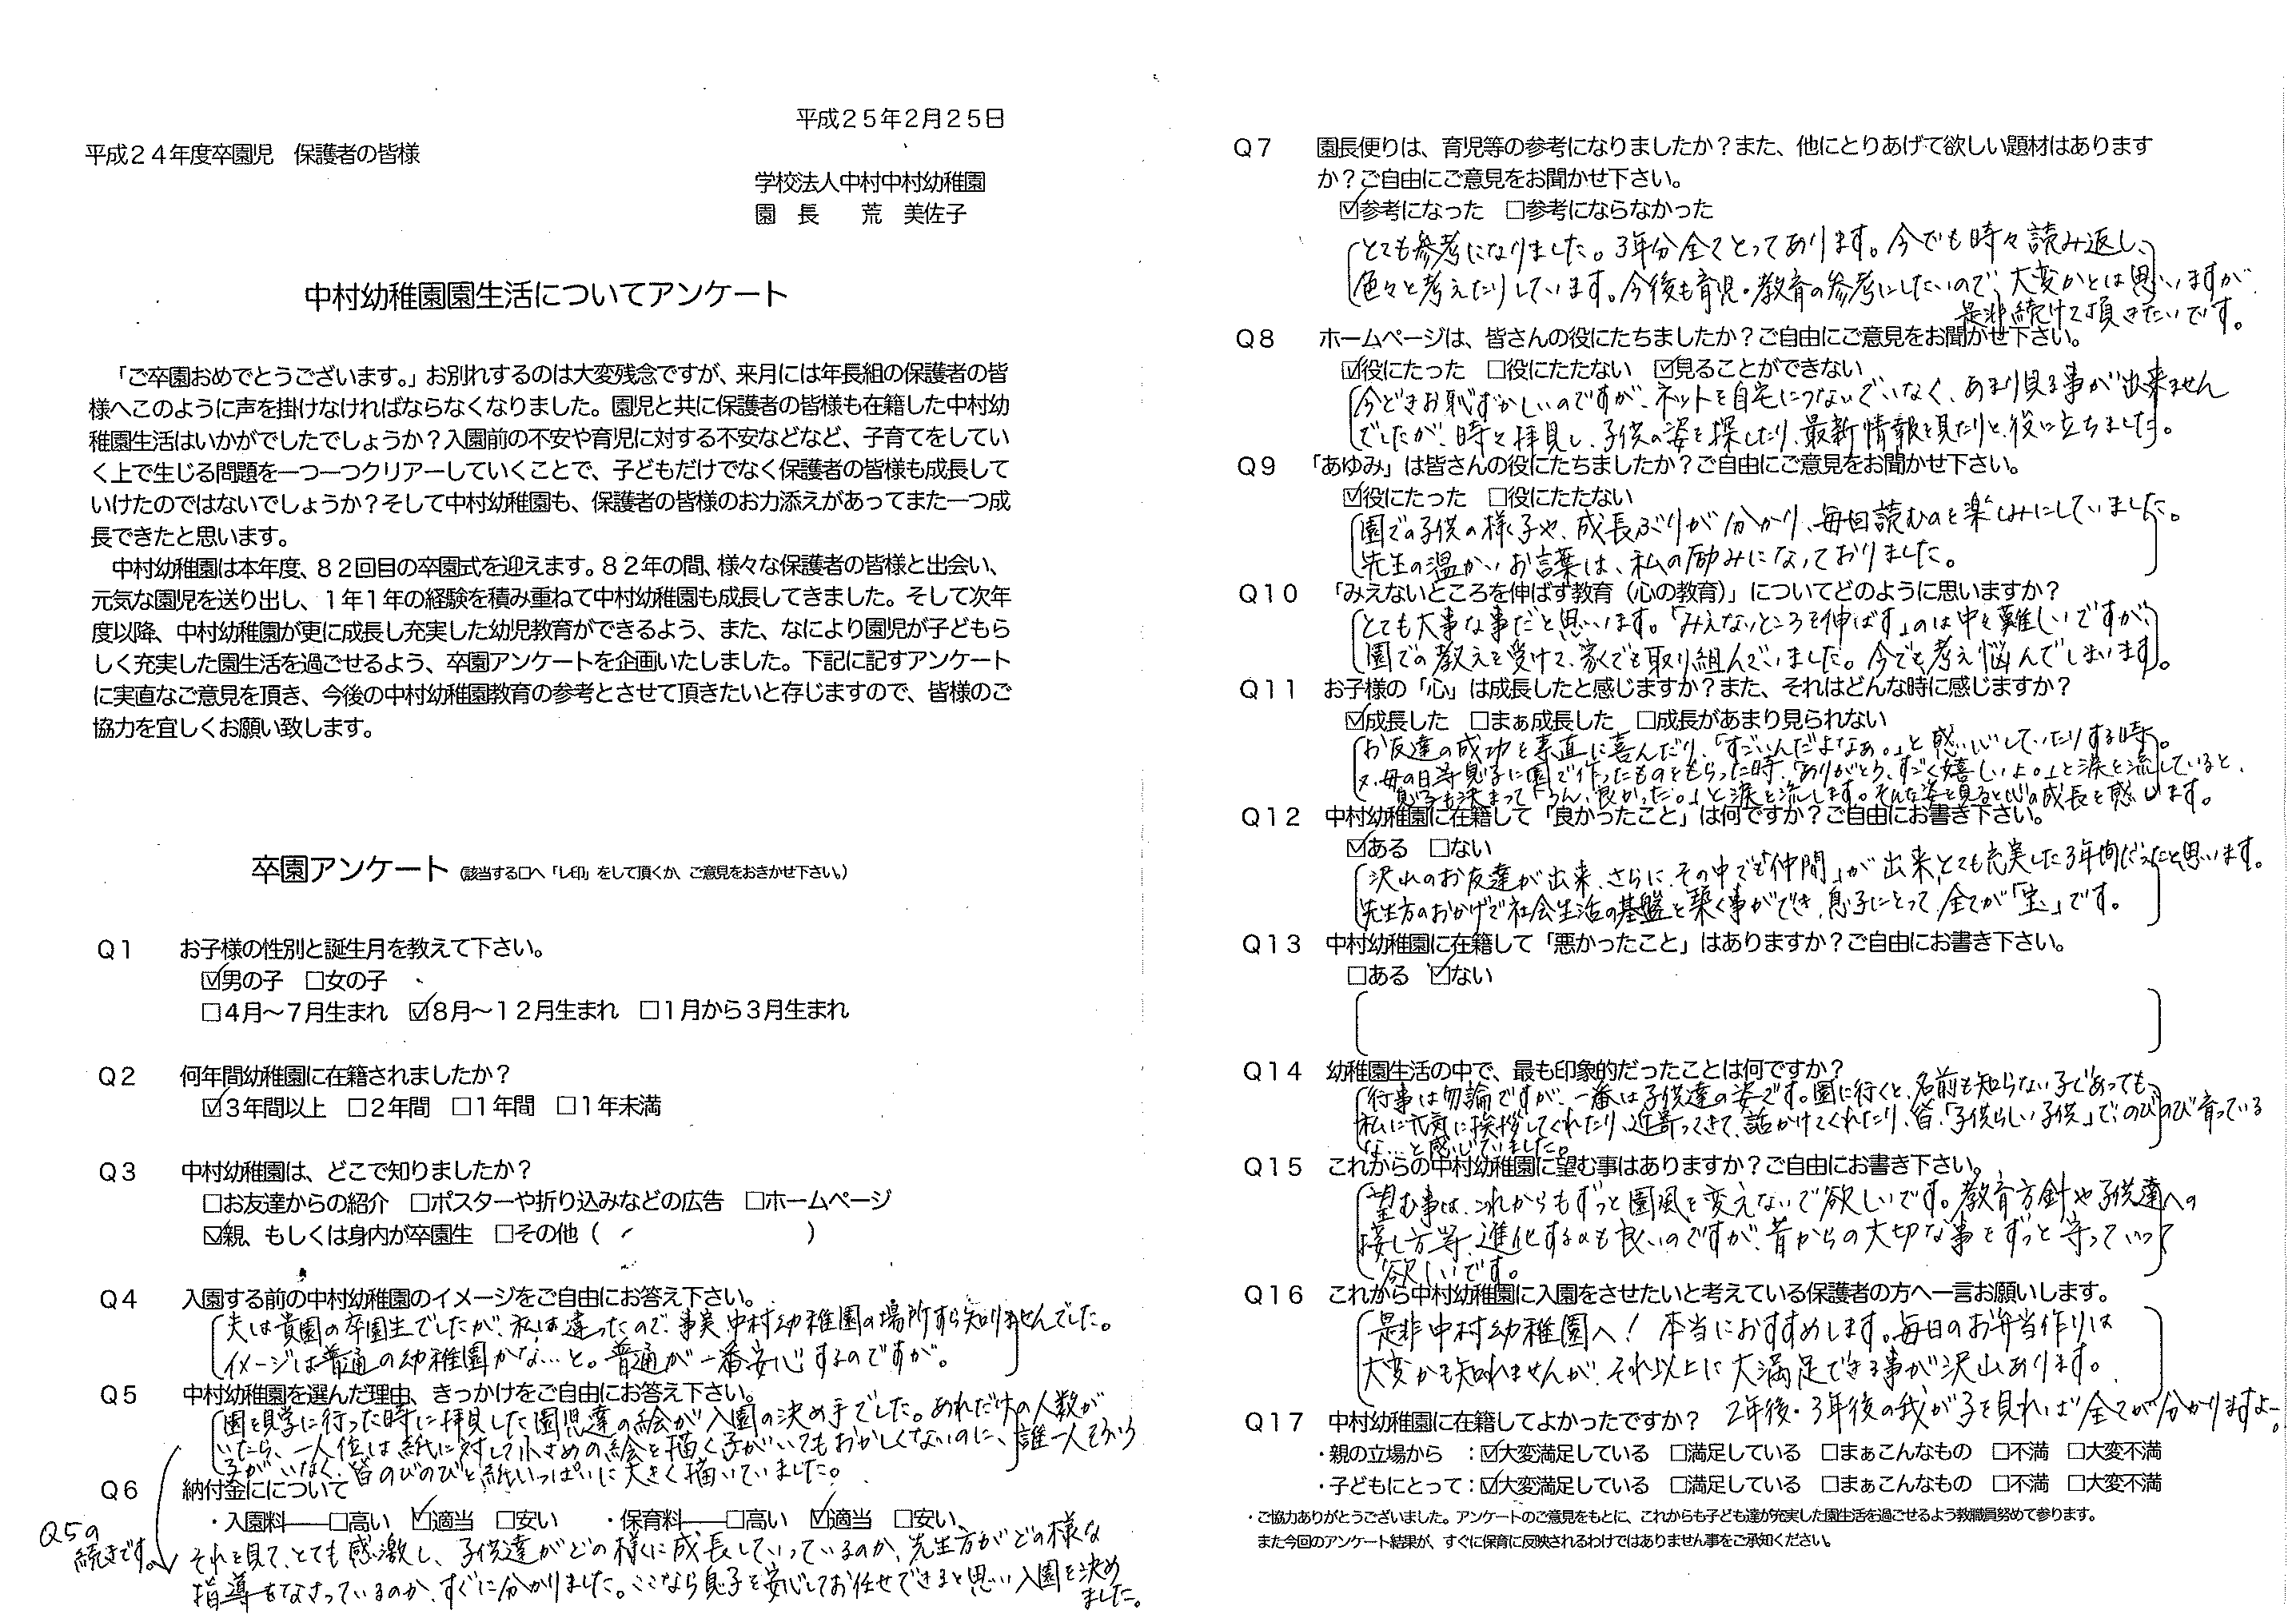 平成25年2月25日
平成24年度卒園児　保護者の皆様
学校法人中村中村幼稚園
園　長　　荒　美佐子
中村幼稚園園生活についてアンケート
「ご卒園おめでとうございます。」お別れするのは大変残念ですが、来月には年長組の保護者の皆
様へこのように声を掛けなければならなくなりました。園児と共に保護者の皆様も在籍した中村幼
稚園生活はいかがでしたでしょうか？入園前の不安や育児に対する不安などなど、子育てをしてい
く上で生じる問題を一つ一つクリアーしていくことで、子どもだけでなく保護者の皆様も成長して
いけたのではないでしょうか？そして中村幼稚園も、保護者の皆様のお力添えがあってまた一つ成
長できたと思います。
中村幼稚園は本年度、82回目の卒園式を迎えます。82年の間、様々な保護者の皆様と出会い、
元気な園児を送り出し、1年1年の経験を積み重ねて中村幼稚園も成長してきました。そして次年
度以降、中村幼稚園が更に成長し充実した幼児教育ができるよう、また、なにより園児が子どもら
しく充実した園生活を過ごせるよう、卒園アンケートを企画いたしました。下記に記すアンケート
に実直なご意見を頂き、今後の中村幼稚園教育の参考とさせて頂きたいと存じますので、皆様のご
協力を宜しくお願い致します。
卒園アンケート（該当する□へ「レ印」をして頂くか、ご意見をおきかせ下さい。）
Q1　お子様の性別と誕生月を教えて下さい。
☑男の子　□女の子
□4月～7月生まれ　☑8月～12月生まれ　□1月から3月生まれ
Q2　何年間幼稚園に在籍されましたか？
☑3年間以上　□2年間　□1年間　□1年未満
Q3　中村幼稚園は、どこで知りましたか？
□お友達からの紹介　□ポスターや折り込みなどの広告　□ホームページ
☑親、もしくは身内が卒園生　□その他（　　　）
Q4　入園する前の中村幼稚園のイメージをご自由にお答え下さい。
夫は貴園の卒園生でしたが、私は違ったので、事実中村幼稚園の場所すら知りませんでした。
イメージは普通の幼稚園かな…と。普通が一番安心するのですが。
Q5　中村幼稚園を選んだ理由、きっかけをご自由にお答え下さい。
園を見学に行った時に拝見した園児達の絵が入園の決め手でした。あれだけの人数が
いたら、一人位は紙に対して小さめの絵を描く子がいてもおかしくないのに、誰一人そういう
子がいなく、皆のびのびと紙いっぱいに大きく描いていました。
Q6　納付金にについて
・入園料――□高い　☑適当　□安い　・保育料――□高い　☑適当　□安い
Q5の
続きです。
それを見て、とても感激し、子供達がどの様に成長していっているのか、先生方がどの様な
指導をなさっているのか、すぐに分かりました。ここなら息子を安心してお任せできると思い入園を決め
ました。
Q7　園長便りは、育児等の参考になりましたか？また、他にとりあげて欲しい題材はあります
か？ご自由にご意見をお聞かせ下さい。
☑参考になった　□参考にならなかった
とても参考になりました。3年分全てとってあります。今でも時々読み返し、
色々と考えたりしています。今後も育児・教育の参考にしたいので、大変かとは思いますが
是非続けて頂きたいです。
Q8　ホームページは、皆さんの役にたちましたか？ご自由にご意見をお聞かせ下さい。
☑役にたった　□役にたたない　☑見ることができない
今どきお恥ずかしいのですが、ネットを自宅につないでいなく、あまり見る事が出来ません
でしたが、時々拝見し、子供の姿を探したり、最新情報を見たりと、役に立ちました。
Q9　「あゆみ」は皆さんの役にたちましたか？ご自由にご意見をお聞かせ下さい。
☑役にたった　□役にたたない
園での子供の様子や、成長ぶりが分かり、毎回読むのを楽しみにしていました。
先生の温かいお言葉は、私の励みになっておりました。
Q10　「みえないところを伸ばす教育（心の教育）」についてどのように思いますか？
とても大事な事だと思います。「みえないところを伸ばす」のは中々難しいですが、
園での教えを受けて、家でも取り組んでいました。今でも考え悩んでしまいます。
Q11　お子様の「心」は成長したと感じますか？また、それはどんな時に感じますか？
☑成長した　□まぁ成長した　□成長があまり見られない
お友達の成功を素直に喜んだり、「すごいんだよなぁ。」と感心していたりする時。
又、母の日等息子に園で作ったものをもらった時、「ありがとう、すごく嬉しいよ。」と涙を流していると、
息子も決まって「うん、良かった。」と涙を流します。そんな姿を見ると心の成長を感じます。
Q12　中村幼稚園に在籍して「良かったこと」は何ですか？ご自由にお書き下さい。
☑ある　□ない
沢山のお友達が出来、さらに、その中でも「仲間」が出来、とても充実した3年間だったと思います。
先生方のおかげで社会生活の基盤を築く事ができ、息子にとって、全てが「宝」です。
Q13　中村幼稚園に在籍して「悪かったこと」はありますか？ご自由にお書き下さい。
□ある　☑ない
Q14　幼稚園生活の中で、最も印象的だったことは何ですか？
行事は勿論ですが、一番は子供達の姿です。園に行くと、名前も知らない子であっても、
私に元気に挨拶してくれたり、近寄ってきて、話かけてくれたり、皆、「子供らしい子供」で、のびのび育っている
な…と感じていました。
Q15　これからの中村幼稚園に望む事はありますか？ご自由にお書き下さい。
望む事は、これからもずっと園風を変えないで欲しいです。教育方針や子供達への
接し方等、進化するのも良いのですが、昔からの大切な事をずっと守っていって
欲しいです。
Q16　これから中村幼稚園に入園をさせたいと考えている保護者の方へ一言お願いします。
是非中村幼稚園へ！本当におすすめします。毎日のお弁当作りは
大変かも知れませんが、それ以上に大満足できる事が沢山あります。
2年後・3年後の我が子を見れば全てが分かりますよー。
Q17　中村幼稚園に在籍してよかったですか？
・親の立場から　：☑大変満足している　□満足している　□まぁこんなもの　□不満　□大変不満
・子どもにとって：☑大変満足している　□満足している　□まぁこんなもの　□不満　□大変不満
・ご協力ありがとうございました。アンケートのご意見をもとに、これからも子ども達が充実した園生活を過ごせるよう教職員努めて参ります。
また今回のアンケート結果が、すぐに保育に反映されるわけではありません事をご承知ください。